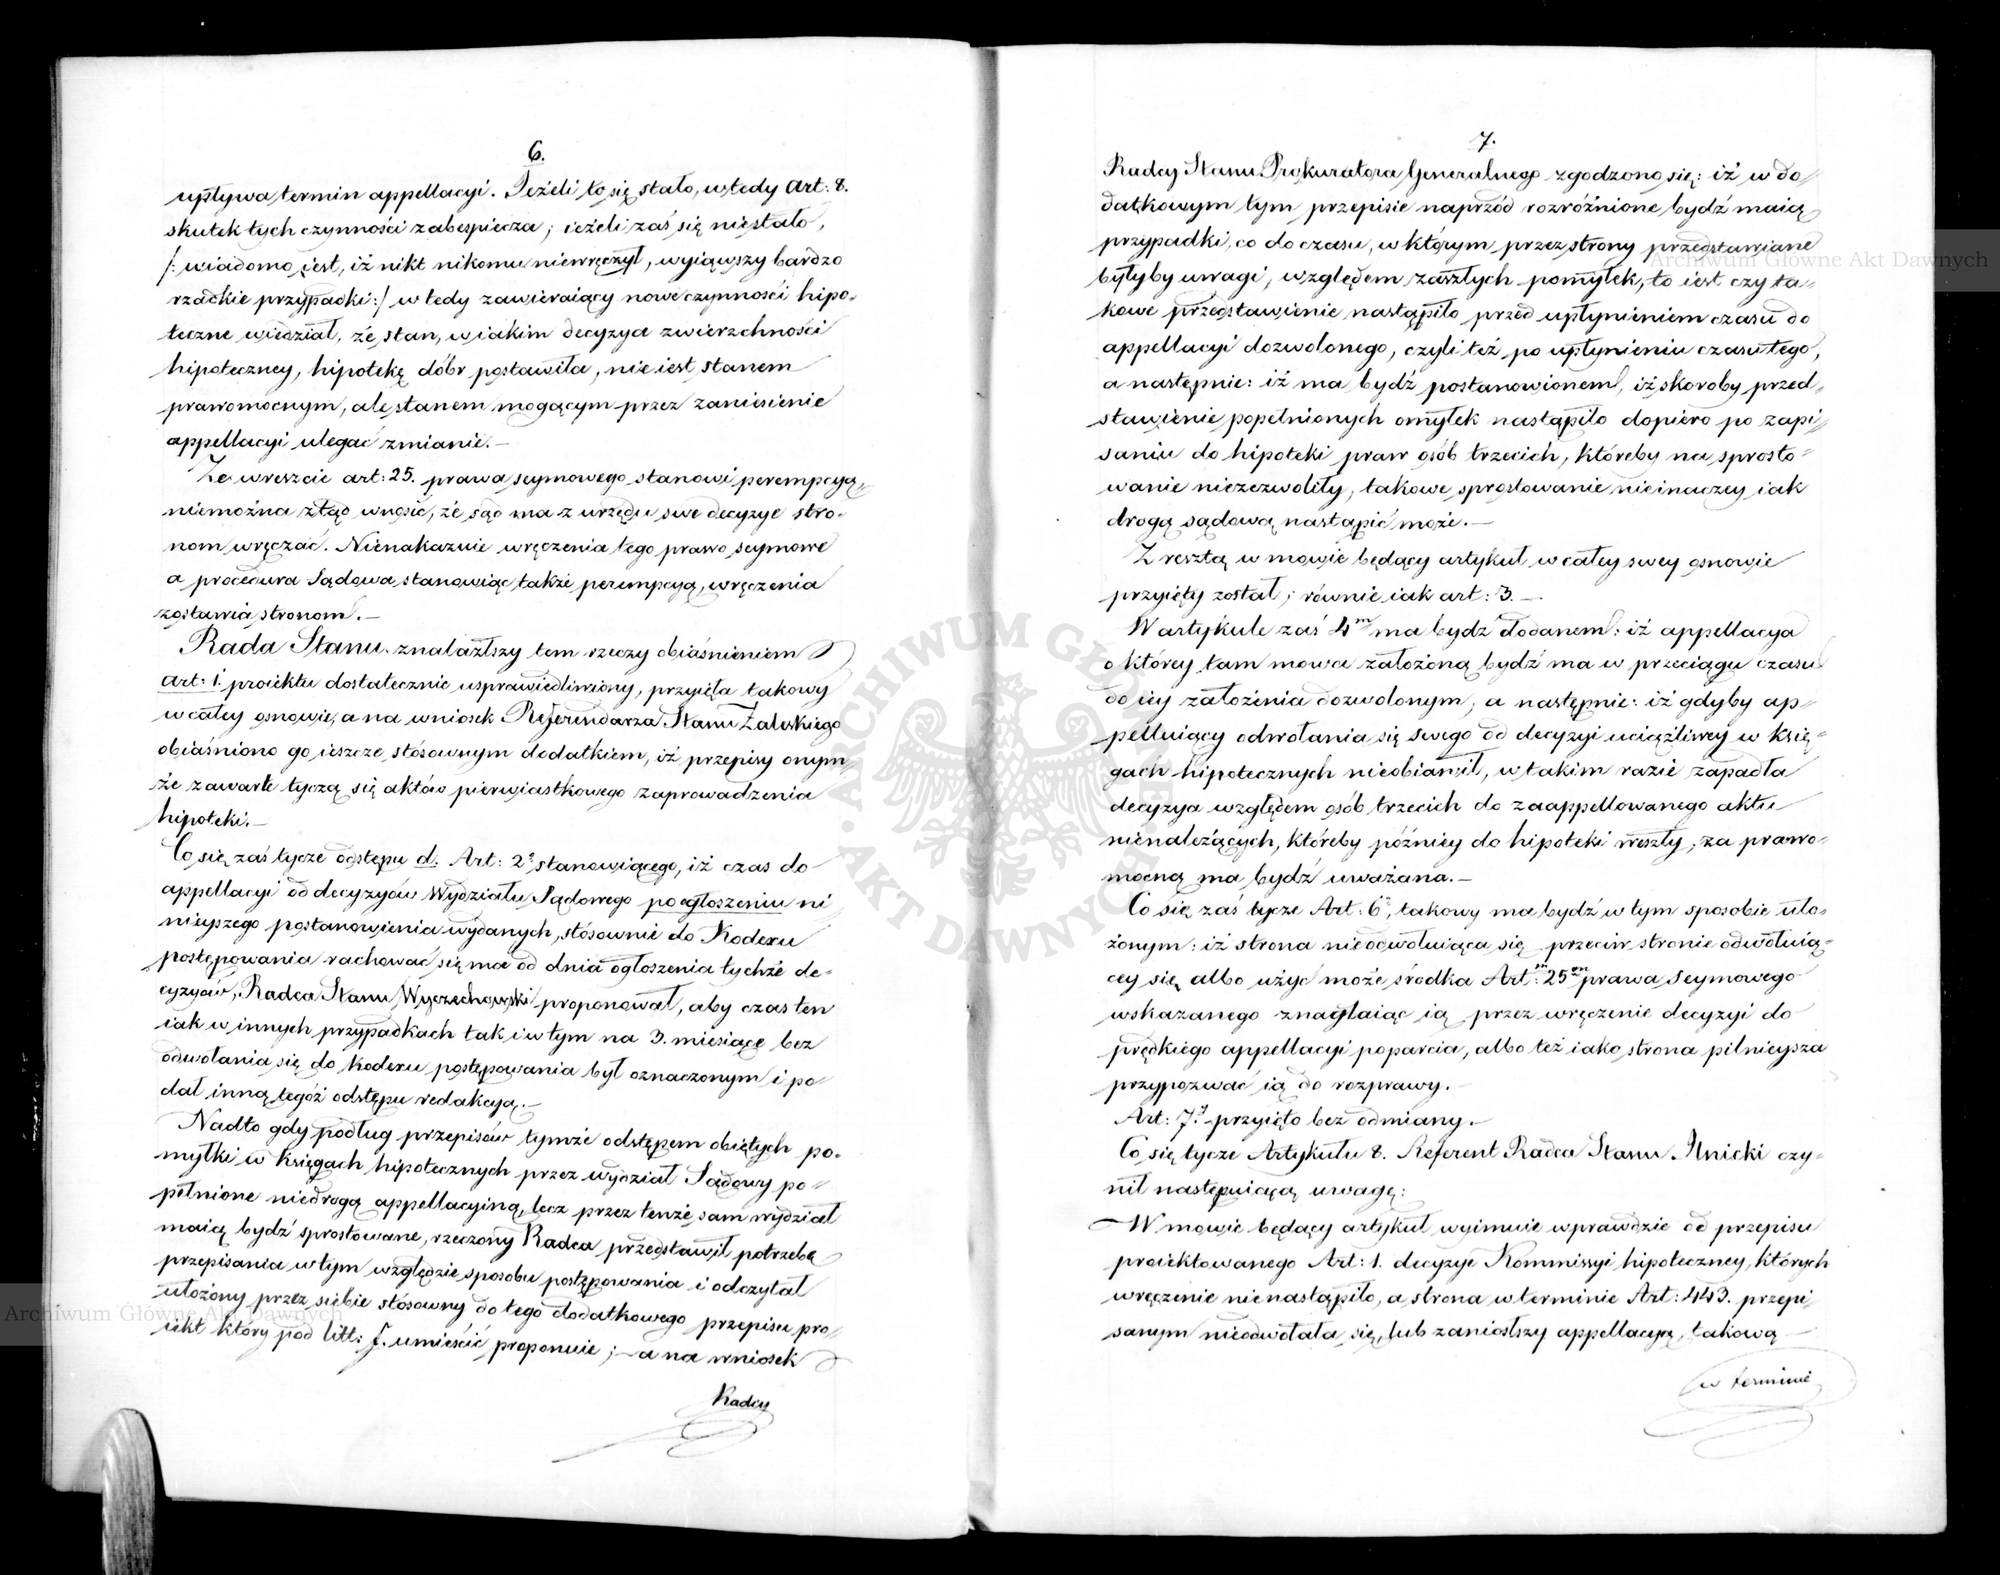 6.
upływa termin appellacyi. Jeżeli to się stało, wtedy art: 8.
skutek tych czynności zabespiecza; ieżeli zaś się niestało,
/: wiadomo iest, iż nikt nikomu niewręczył, wyiąwszy bardzo
rzadkie przypadki:/ wtedy zawieraiący nowe czynności hipo-
teczne wiedział, że stan, w iakim decyzya zwierzchności
hipoteczney, hipotekę dóbr postawiła, nie iest stanem
prawomocnym, ale stanem mogącym przez zaniesienie
appellacyi ulegać zmianie.—
Że wreszcie art: 25. prawa seymowego stanowi perempcyą,
niemożna ztąd wnosić, że sąd ma z urzędu swe decyzye stro-
nom wręczać. Nienakazuie wręczenia tego prawo seymowe
a procedura Sądowa stanowiąc także perempcyą, wręczenia
zostawia stronom.—
Rada Stanu znalazłszy tem rzeczy obiaśnieniem
art: 1. proiektu dostatecznie usprawiedliwiony, przyięła takowy
w całey osnowie, a na wniosek Referendarza Stanu Zaleskiego
obiaśniono go ieszcze stósownym dodatkiem, iż przepisy onym
że zawarte tyczą się aktów pierwiastkowego zaprowadzenia
hipoteki.—
Co się zaś tycze odstępu d. Art: 2º stanowiącego, iż czas do
appellacyi od decyzyów Wydziału Sądowego po ogłoszeniu ni
nieyszego postanowienia wydanych, stósownie do Kodexu
postępowania rachować się ma od dnia ogłoszenia tychże de-
cyzyów, Radca Stanu Wyczechowski proponował, aby czas ten
iak w innych przypadkach tak i w tym na 3. miesiące bez
odwołania się do kodexu postępowania był oznaczonym i po
dał inną tegoż odstępu redakcyą.—
Nadto gdy podług przepisów tymże odstępem obiętych po-
myłki w księgach hipotecznych przez wydział Sądowy po-
pełnione niedrogą appellacyiną, lecz przez tenże sam wydział
maią bydź sprostowane, rzeczony Radca przedstawił potrzebę
przepisania w tym względzie sposobu postępowania i odczytał
ułożony przez siebie stósowny do tego dodatkowego przepisu pro-
iekt który pod litt: f. umieścić proponuie; — a na wniosek
Radcy
7.
Radcy Stanu Prokuratora Generalnego zgodzono się: iż w do-
datkowym tym przepisie naprzód rozróżnione bydź maią
przypadki, co do czasu, w którym przez strony przedstawiane
byłyby uwagi, względem zaszłych pomyłek, to iest czy ta-
kowe przedstawienie nastąpiło przed upłynieniem czasu do
appellacyi dozwolonego, czyli też po upłynieniu czasu tego,
a następnie: iż ma bydź postanowionem, iż skoroby przed-
stawienie popełnionych omyłek nastąpiło dopiero po zapi-
saniu do hipoteki praw osób trzecich, któreby na sprosto-
wanie niezezwoliły, takowe sprostowanie nieinaczey iak
drogą sądową nastąpić może.—
Z resztą w mowie będący artykuł w całey swey osnowie
przyięty został; równie iak art: 3.—
W artykule zaś 4m ma bydź dodanem: iż appellacya
o którey tam mowa założoną bydź ma w przeciągu czasu
do iey założenia dozwolonym, a następnie: iż gdyby ap-
pelluiący odwołania się swego od decyzyi uciążliwey w księ-
gach hipotecznych nieobiawił, w takim razie zapadła
decyzya względem osób trzecich do zaappellowanego aktu
nienależących, któreby późniey do hipoteki weszły, za prawo-
mocną ma bydź uważana.—
Co się zaś tycze Art: 6º, takowy ma bydź w tym sposobie uło-
żonym: iż strona nieodwołuiąca się przeciw stronie odwołuią-
cey się, albo użyć może środka Artm: 25em prawa Seymowego
wskazanego znaglaiąc ią przez wręczenie decyzyi do
prędkiego appellacyi poparcia, albo też iako strona pilnieysza
przypozwać ią do rozprawy.—
Art: 7y przyięto bez odmiany.—
Co się tycze Artykułu 8. Referent Radca Stanu Ilnicki czy-
nił następuiącą uwagę:
W mowie będący artykuł wyimuie wprawdzie od przepisu
proiektowanego Art: 1. decyzye Kommissyi hipoteczney, których
wręczenie nienastąpiło, a strona w terminie Art: 443. przepi-
sanym nieodwołała się, lub zaniósłszy appellacyą, takową
w terminie
Archiwum Główne Akt Dawnych
Archiwum Główne Akt Dawnych
ARCHIWUM GŁÓWNE · AKT DAWNYCH ·